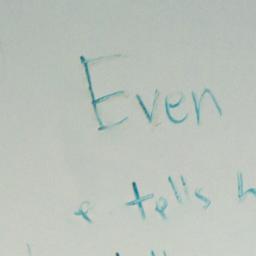 Even
e tells h